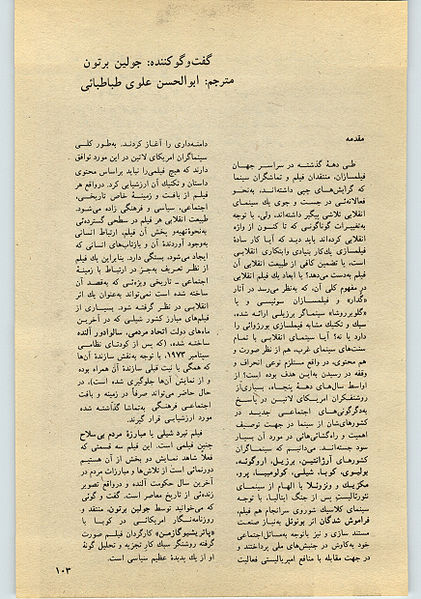 گفت‌وگو کننده: جولین برتون
مترجم: ابوالحسن علوی طباطبائی
مقدمه
طی دههٔ گذشته در سراسر جهان
فیلمسازان، منتقدان فیلم و تماشگران سینما
که گرایش‌های چپی داشته‌اند، به‌نحو
فعالانه‌ئی در جست و جوی یك سینمای
انقلابی تلاشی پیگیر داشته‌اند، ولی، با توجه
به‌تغییرات گوناگونی که تا کنون از واژه
انقلابی کرده‌اند باید دید که آیا کار سادهٔ
فیلمسازی یك‌کار بنیادی وابتکاری انقلابی
است، یا تضمین کافی از طبیعت انقلابی آن
فیلم به‌دست می‌دهد؟ یا ابعاد یك فیلم انقلابی
در مفهوم کلی آن، که به‌نظر می‌رسد در آثار
«گدار» و فیلمسازان سوئیسی و یا
«گلوبرروشا» سینماگر برزیلی ارائه شده،
سبك و تکنیك مشابه فیلمسازی بورژوائی را
دارد یا نه؟ آیا سینمای انقلابی با تمام
سنت‌های سینمای غرب، هم از نظر صورت و
هم محتوی، در واقع مستلزم نوعی انحراف و
وقفه در رسیدن به‌این هدف بوده است؟ از
اواسط سال‌های دههٔ پنجاه، بسیاری‌از
روشنفکران امریکای لاتین در پاسخ
به‌دگرگونی‌های اجتماعی جدید در
کشورهای‌شان از سینما در جهت توصیف
اهمیت و راه‌گشائی‌هائی در مورد آن بسیار
سود جسته‌اند. می‌دانیم که‌سینماگران
کشورهای آرژانتین، برزیل، اروگوئه،
بولیوی، کوبا، شیلی، کولومبیا، پرو،
مکزیك و ونزوئلا با الهام از سینمای
نئورئالیستِ پس از جنگ ایتالیا، با توجه
سینمای کلاسیك شوروی سرانجام هم فیلم،
فراموش شدگان اثر بونوئل به‌نیاز صنعت
مستند سازی و نیز باتوجه به‌مسائل‌اجتماعی
خود به‌کاوش در جنبش‌های ملی پرداختند و
در جهت مقابله با منافع امپریالیستی فعالیت
دامنه‌داری را آغاز کردند. به‌طور کلی
سینماگران امریکای لاتین در این مورد توافق
دارند که هیچ فیلمی را نباید براساس محتوی
داستان و تکنیك آن ارزشیابی کرد. درواقع هر
فیلم از بافت و زمینهٔ خاص تاریخی،
اجتماعی، سیاسی و فرهنگی زاده می‌شود.
طبیعت انقلابی هر فیلم در سطحی گسترده‌ئی
به‌نحوهٔ‌تهیه‌و پخش آن فیلم، ارتباط انسانی
به‌وجود آورندهٔ آن و بازتاب‌های انسانی که
ایجاد می‌شود، بستگی دارد. بنابراین یك فیلم
از نظر تعریف به‌جز در ارتباط با زمینهٔ
اجتماعی - تاریخی ویژه‌ئی که‌به‌قصد آن
ساخته شده است نمی‌تواند به‌عنوان یك اثر
انقلابی در نظر گرفته شود. بسیاری از
فیلم‌های مبارز کشور شیلی که در آخرین
ماه‌های دولت اتحاد مردمی، سالوادور آلنده
ساخته شده، (که پس از کودتای نظامی
سپتامبر ۱۹۷۳، با توجه به‌نقش سازندهٔ آن‌ها
که همگی با نیت قبلی سازندهٔ آن همراه بوده
و از نمایش آن‌ها جلوگیری شده است)، در
حال حاضر می‌تواند صرفاً در زمینه و بافت
اجتماعی فرهنگی به‌تماشا گذاشته شده
مورد ارزشیابی قرار گیرند.
فیلم نبرد شیلی یا مبارزهٔ مردم بی‌سلاح
چنین فیلمی است. این فیلم سه قسمتی که
فعلاً شاهد نمایش دو بخش از آن هستیم
دورنمائی است از تلاش‌ها و مبارزات مردم در
آخرین سال حکومت آلنده و درواقع تصویر
زنده‌ئی از تاریخ معاصر است. گفت و گوئی
که می‌خوانید توسط جولین برتون، منتقد و
روزنامه‌نگار امریکائی در کوبا با
«پاتریشیو گازمن» کارگردان فیلم صورت
گرفته روشنگر سبك کار تجزیه و تحلیل گونهٔ
او از یك پدیدهٔ عظیم سیاسی است.
۱۰۳